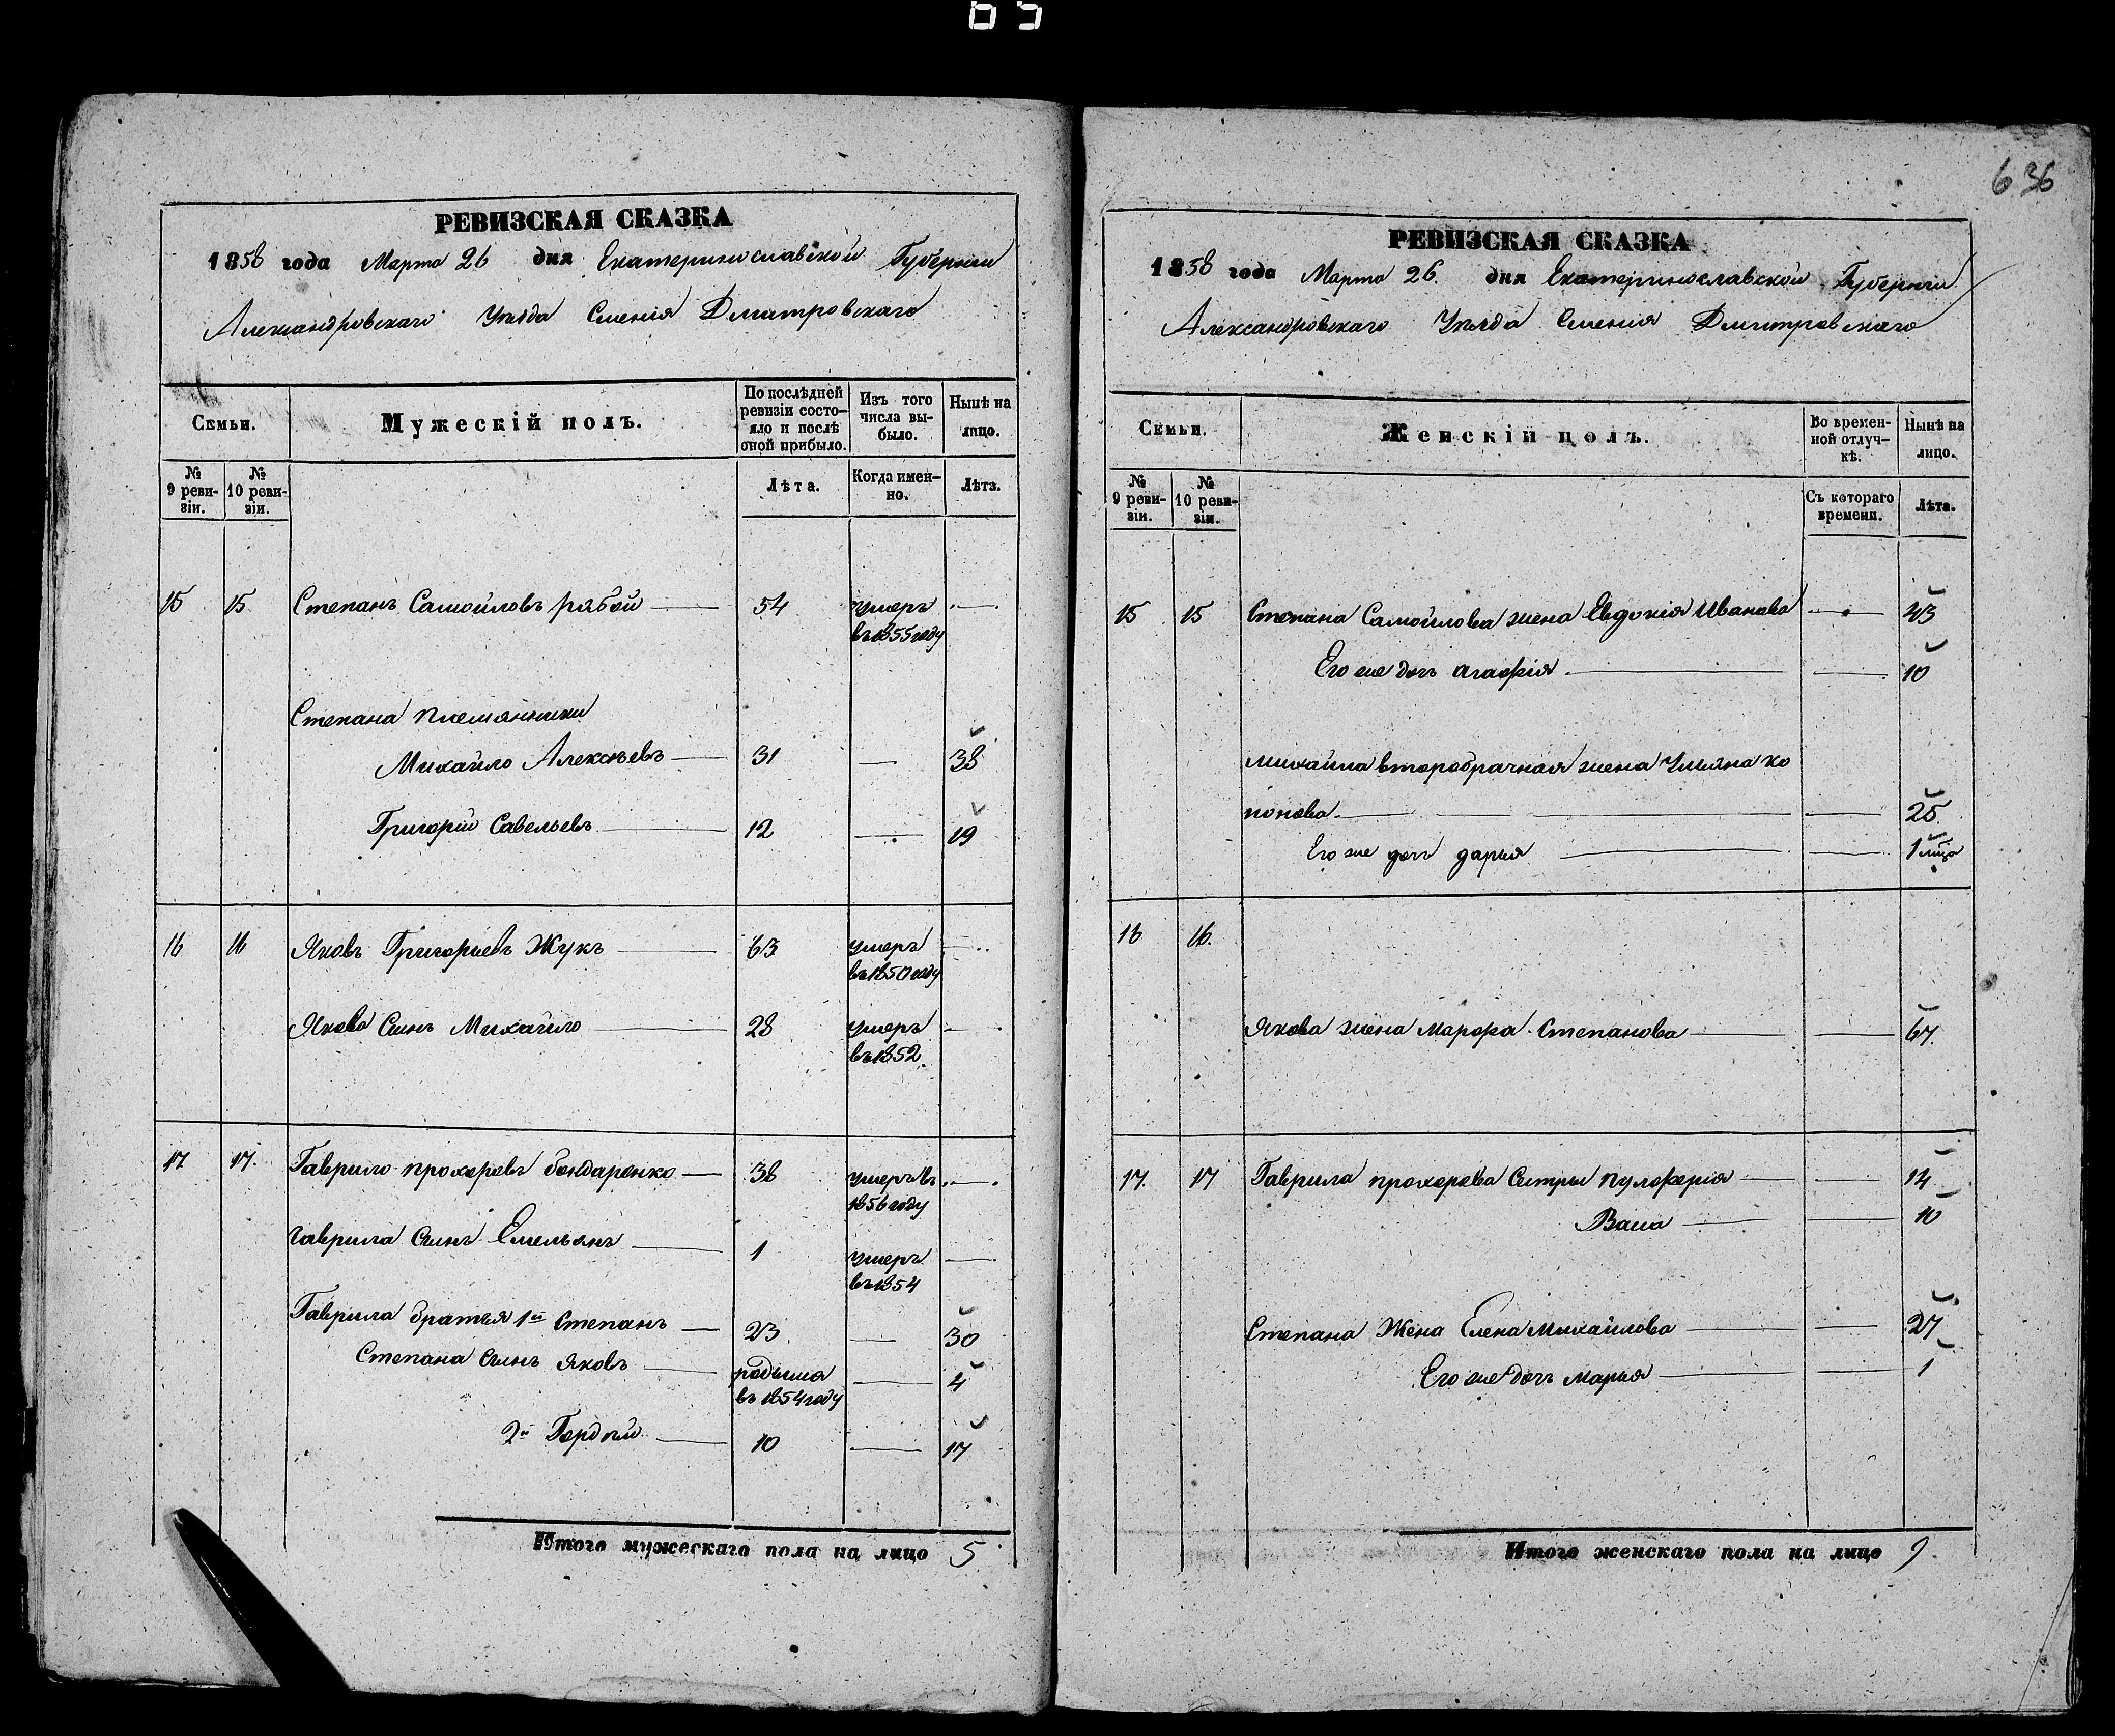 65
636
РЕВИЗСКАЯ СКАЗКА
1858 года Марта 26 дня Екатеринославской Губерніи
Александровскаго Уѣзда Селенія Дмитровскаго
Семьи.
Мужескій полъ.
По послѣдней ревизіи состо-
яло и послѣ оной прибыло.
Изъ того числа вы-
было.
Нынѣ на лицо.
№ 9 реви-
зіи.
№ 10 реви-
зіи.
Лѣта.
Когда имен-
но.
Лѣта.
15 15 Степанъ Самойловъ рябой 54 умеръ —
въ 1855 году
Степана племянники
Михайло Алексѣевъ 31 — 38
Григорій Савельевъ 12 — 19
16 16 Яковъ Григорьевъ Жукъ 63 умеръ —
въ 1850 году
Якова Сынъ Михайло 28 умеръ —
въ 1852
17 17. Гаврило прохоровъ бондаренко 38 умеръ въ —
1856 году
гаврила сынъ Емельянъ 1 умеръ —
въ 1854
Гаврила братья 1й Степанъ 23 — 30
Степана сынъ яковъ родился — 4
въ 1854 году
2й Гордѣй 10 — 17
Итого мужескаго пола на лицо 5
РЕВИЗСКАЯ СКАЗКА
1858 года Марта 26. дня Екатеринославской Губерніи
Александровскаго Уѣзда Селенія Дмитровскаго
Семьи.
Женскій полъ.
Во времен-
ной отлуч-
кѣ.
Нынѣ на лицо.
№ 9 реви-
зіи.
№ 10 реви-
зіи.
Съ котораго времени.
Лѣта.
15 15 Степана Самойлова жена Евдокія Иванова — 43
Его же дочь агафія — 10
михайла второбрачная жена Ульяна ко
нонова — 25
Его же дочь дарья — 1
16 16.
Якова жена Марфа Степанова — 67.
17. 17 Гаврила прохорова Сестры пулхерія — 14
Васа — 10
Степана Жена Елена Михайлова — 27
Его же дочь марья — 1
Итого женскаго пола на лицо 9